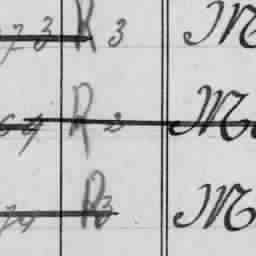 73 R 3 M
64 R 2 M
74 R3 M